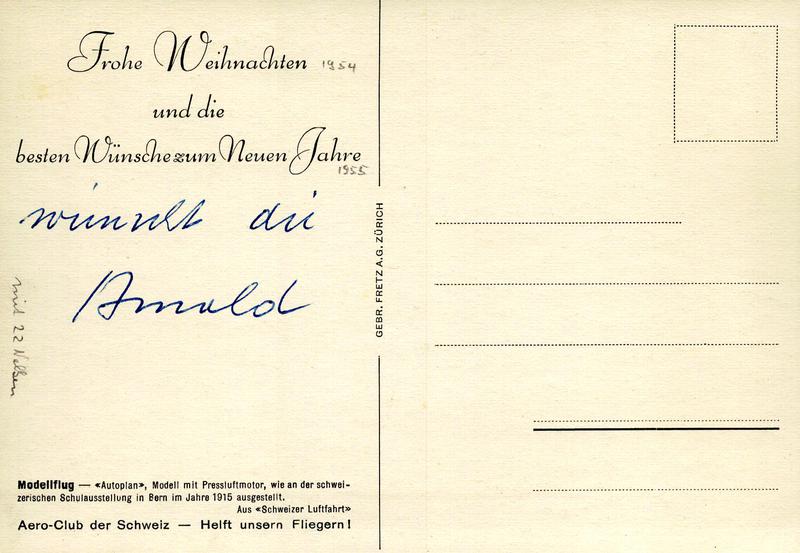 Frohe Weihnachten 1954
und die
besten Wünsche zum Neuen Jahre
1955
wünscht dir
Arnold
mit 22 Nelken
GEBR. FRETZ A.G. ZÜRICH
Modellflug — «Autoplan», Modell mit Pressluftmotor, wie an der schwei-
zerischen Schulausstellung in Bern im Jahre 1915 ausgestellt.
Aus «Schweizer Luftfahrt»
Aero-Club der Schweiz — Helft unsern Fliegern!